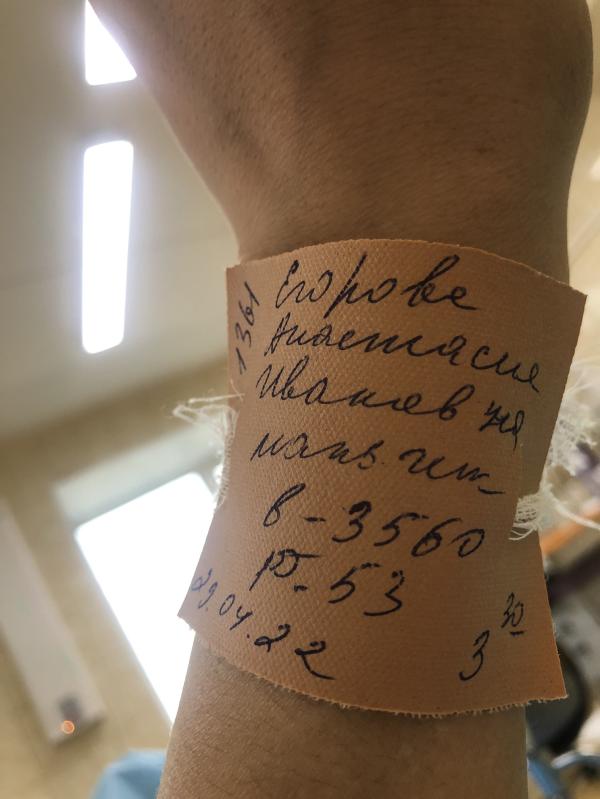 1361
Егорове
Анастасия
Ивановна
мальчик
в-3560
р-53
29.04.22
3 30